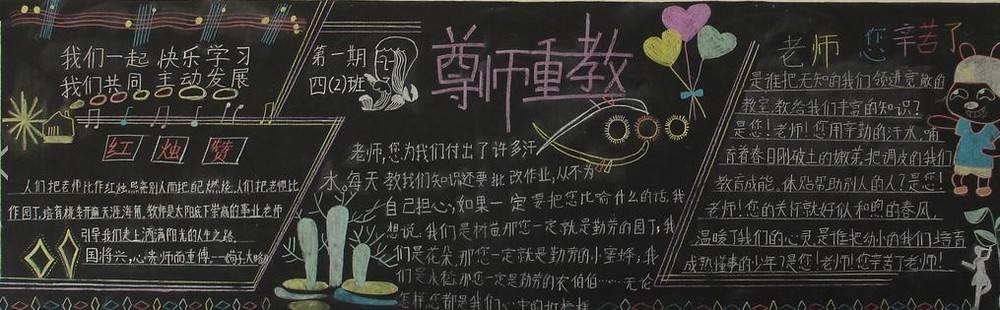 我们一起 快乐学习
我们共同 主动发展
第一期
四(2)班
尊师重教
红烛赞
人们把老师比作红烛,照亮别人而把自己燃烧,人们把老师比
作园丁,培育桃李开遍天涯海角,教师是太阳底下崇高的事业,老师
引导我们走上洒满阳光的人生之路。
国将兴,心贵师而重傅。——《荀子·大略》
老师,您为我们付出了许多汗
水。每天教我们知识还要批改作业,从不为
自己担心,如果一定要把您比喻什么的话,我
想说,我们是树苗那您一定就是勤劳的园丁;我
们是花朵,那您一定就是勤劳的小蜜蜂;我
们是水稻,那您一定是勤劳的农伯伯……无论
怎样您都是我们心中的
老师 您辛苦了
是谁把无知的我们领进宽敞的
教室,教给我们丰富的知识?
是您!老师!您用辛勤的汗水,哺
育着春日刚破土的嫩芽,把调皮的我们
教育成能,体贴帮助别人的人?是您!
老师!您的关怀就好似和煦的春风,
温暖了我们的心灵是谁把幼小的我们,培育
成熟懂事的少年?是您!老师!您辛苦了老师!